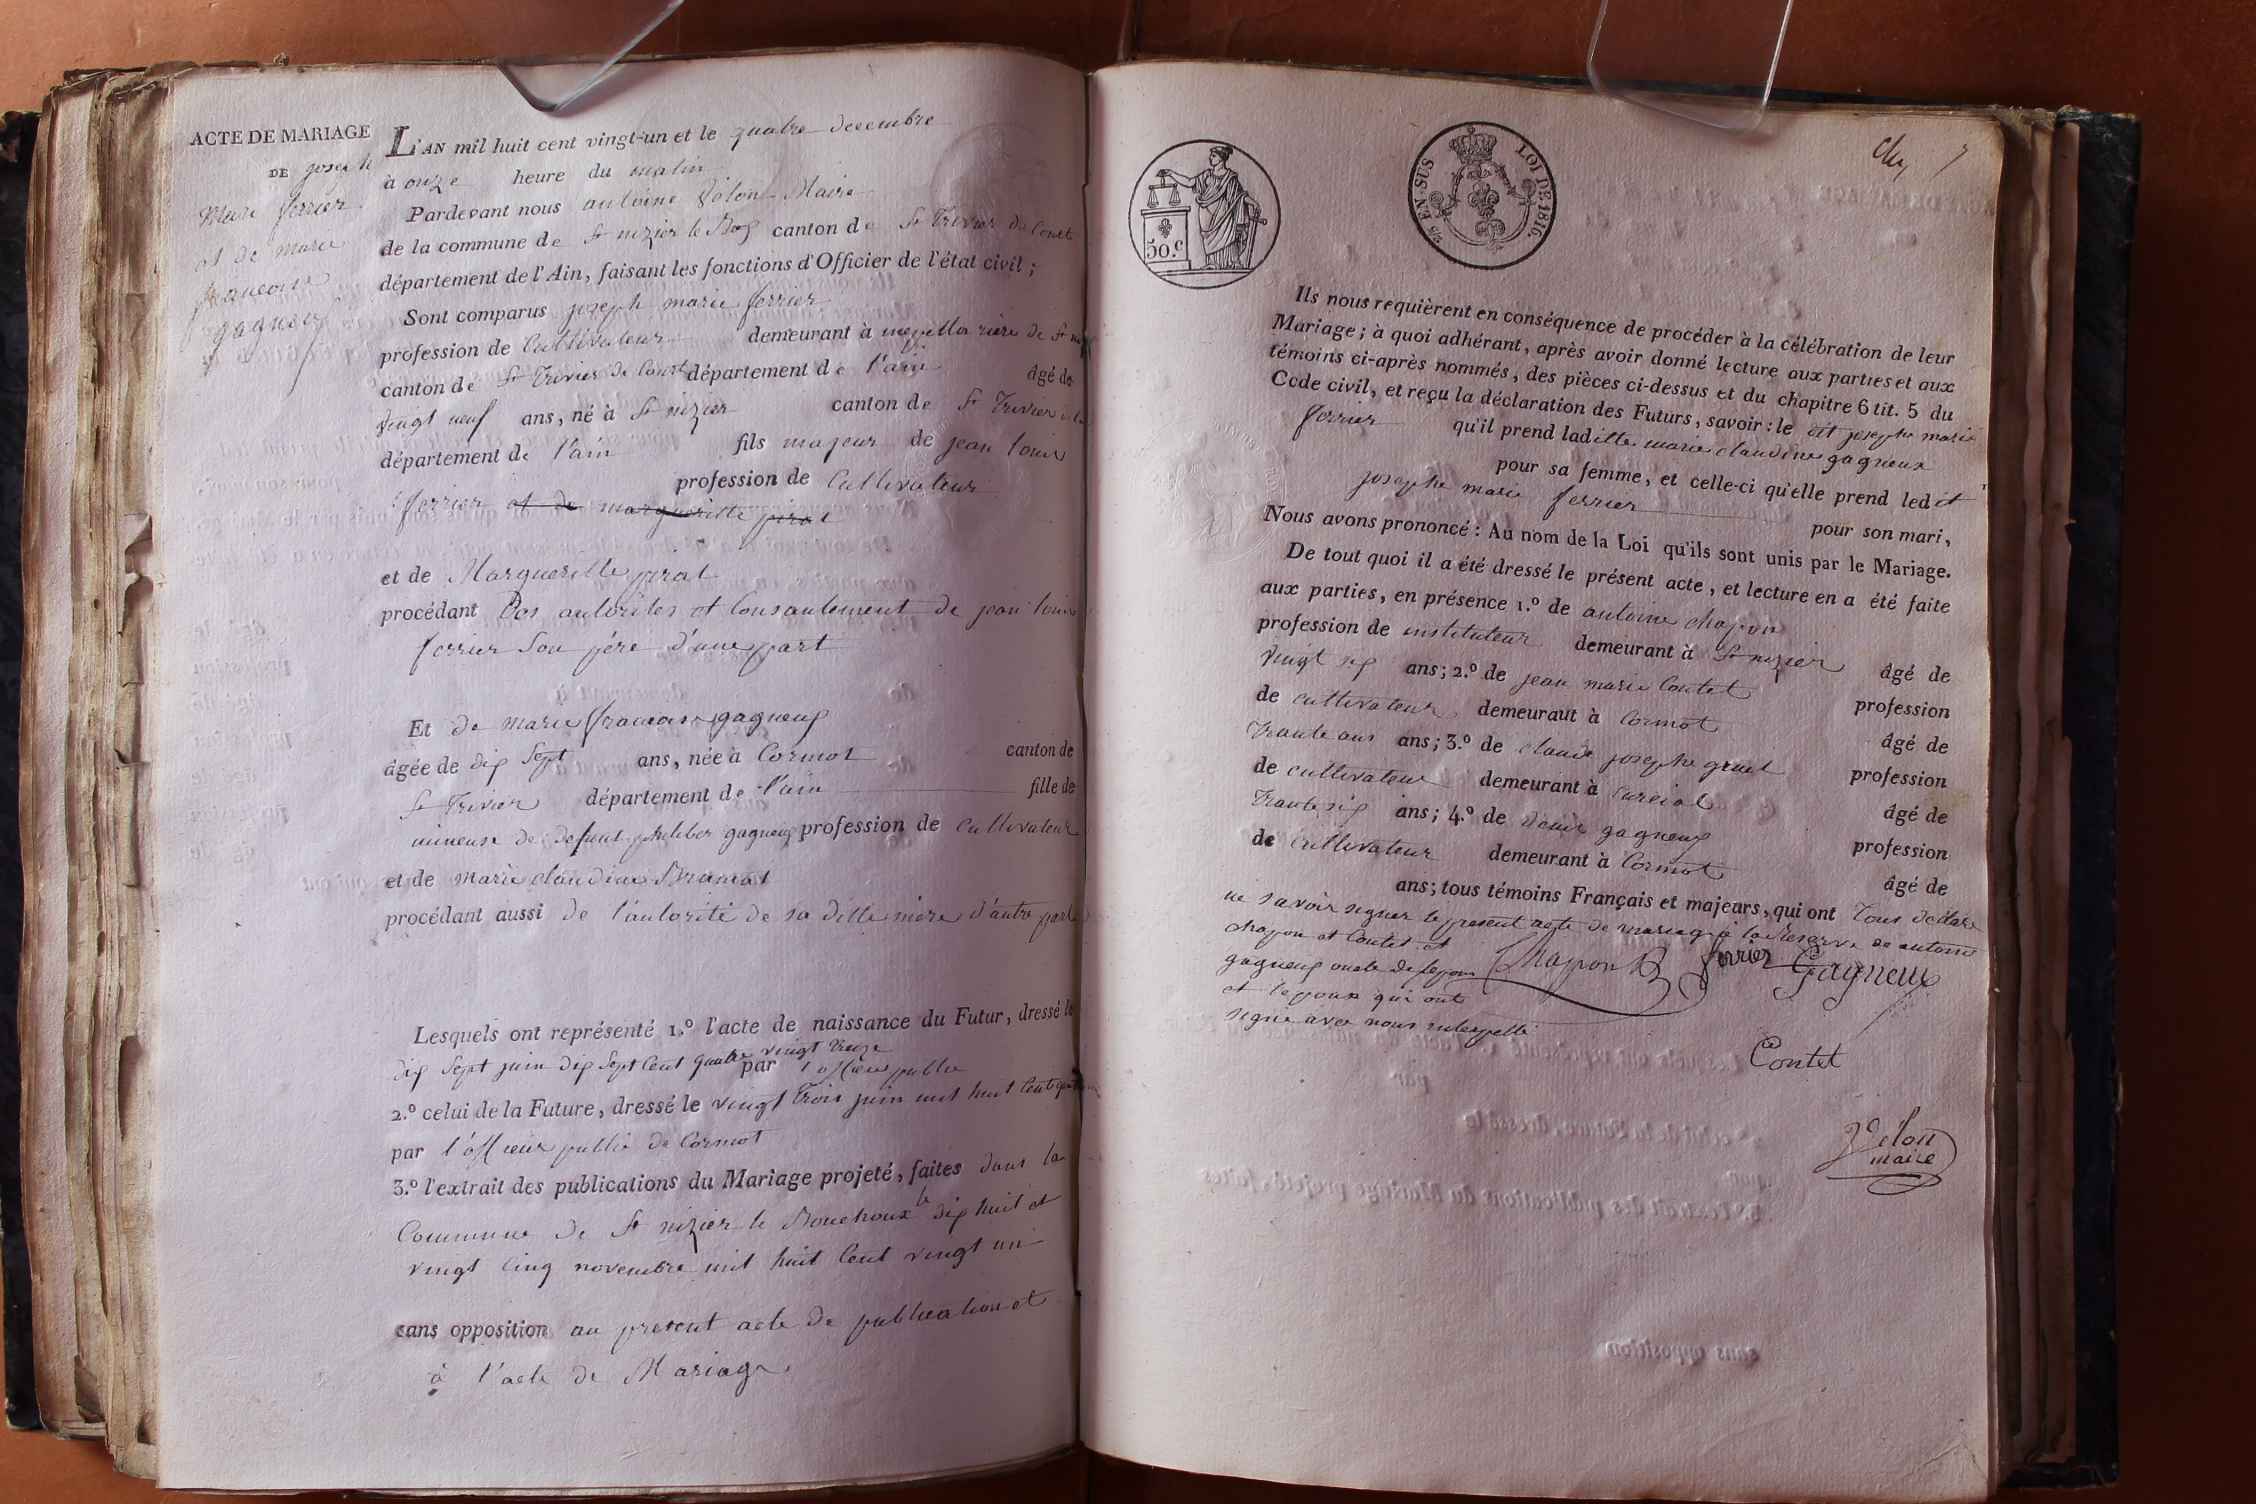 ACTE DE MARIAGE
DE joseph
Marie ferrier
et de marie
francoise
gagneux
L'AN mil huit cent vingt-un et le quatre decembre
à onze heure du matin
Pardevant nous antoine Velon Maire
de la commune de St nizier le Bog canton de St Trivier de Court
département de l'Ain, faisant les fonctions d'Officier de l'état civil;
Sont comparus joseph marie ferrier
profession de Cultivateur demeurant à rière de St
canton de St Trivier de Court département de l'ain âgé de
vingt neuf ans, né à St nizier canton de St Trivier
département de l'ain fils majeur de jean louis
profession de Cultivateur
ferrier et de margueritte pirat
et de Margueritte pirat
procédant Des autorites et Consantement de jean louis
ferrier Son père d'une part
Et de marie francoise gagneux
âgée de dix Sept ans, née à Cormoz canton de
St Trivier département de l'ain fille de
mineuse de defunt philiber gagneux profession de cultivateur
et de marie claudine Brunat
procédant aussi de l'autorité de sa ditte mère d'autre part
Lesquels ont représenté 1.º l'acte de naissance du Futur, dressé le
dix Sept juin dix Sept Cent quatre vingt treize
par l'officier public
2.º celui de la Future, dressé le vingt trois juin mil huit Cent quatre
par l'officier public de Cormot
3.º l'extrait des publications du Mariage projeté, faites dans la
Commune de St nizier le Bouchoux le dix huit et
vingt Cinq novembre mil huit Cent vingt un
sans opposition au present acte de publication et
à l'acte de Mariage
50.C
EN SUS LOI DE 1816.
Ils nous requièrent en conséquence de procéder à la célébration de leur
Mariage; à quoi adhérant, après avoir donné lecture aux parties et aux
témoins ci-après nommés, des pièces ci-dessus et du chapitre 6 tit. 5 du
Code civil, et reçu la déclaration des Futurs, savoir: le dit josephe marie
ferrier qu'il prend laditte marie claudine gagneux
pour sa femme, et celle-ci qu'elle prend ledit
josephe marie ferrier pour son mari,
Nous avons prononcé: Au nom de la Loi qu'ils sont unis par le Mariage.
De tout quoi il a été dressé le présent acte, et lecture en a été faite
aux parties, en présence 1.º de antoine chapon
profession de instituteur demeurant à St nizier âgé de
vingt six ans; 2.º de jean marie Contet profession
de cultivateur demeurant à Cormot âgé de
trante ans ans; 3.º de claude josephe profession
de cultivateur demeurant à curciat âgé de
trante six ans; 4.º de denis gagneux profession
de Cultivateur demeurant à Cormot âgé de
ans; tous témoins Français et majeurs, qui ont Tous declare
ne savoir signer le present acte de mariage à la Reserve de antoine
chapon et Contet et
gagneux oncle de lepouse Chapon ferrier Gagneux
et lepoux qui ont
signé avec nous interpellé
Contet
Velon
maire